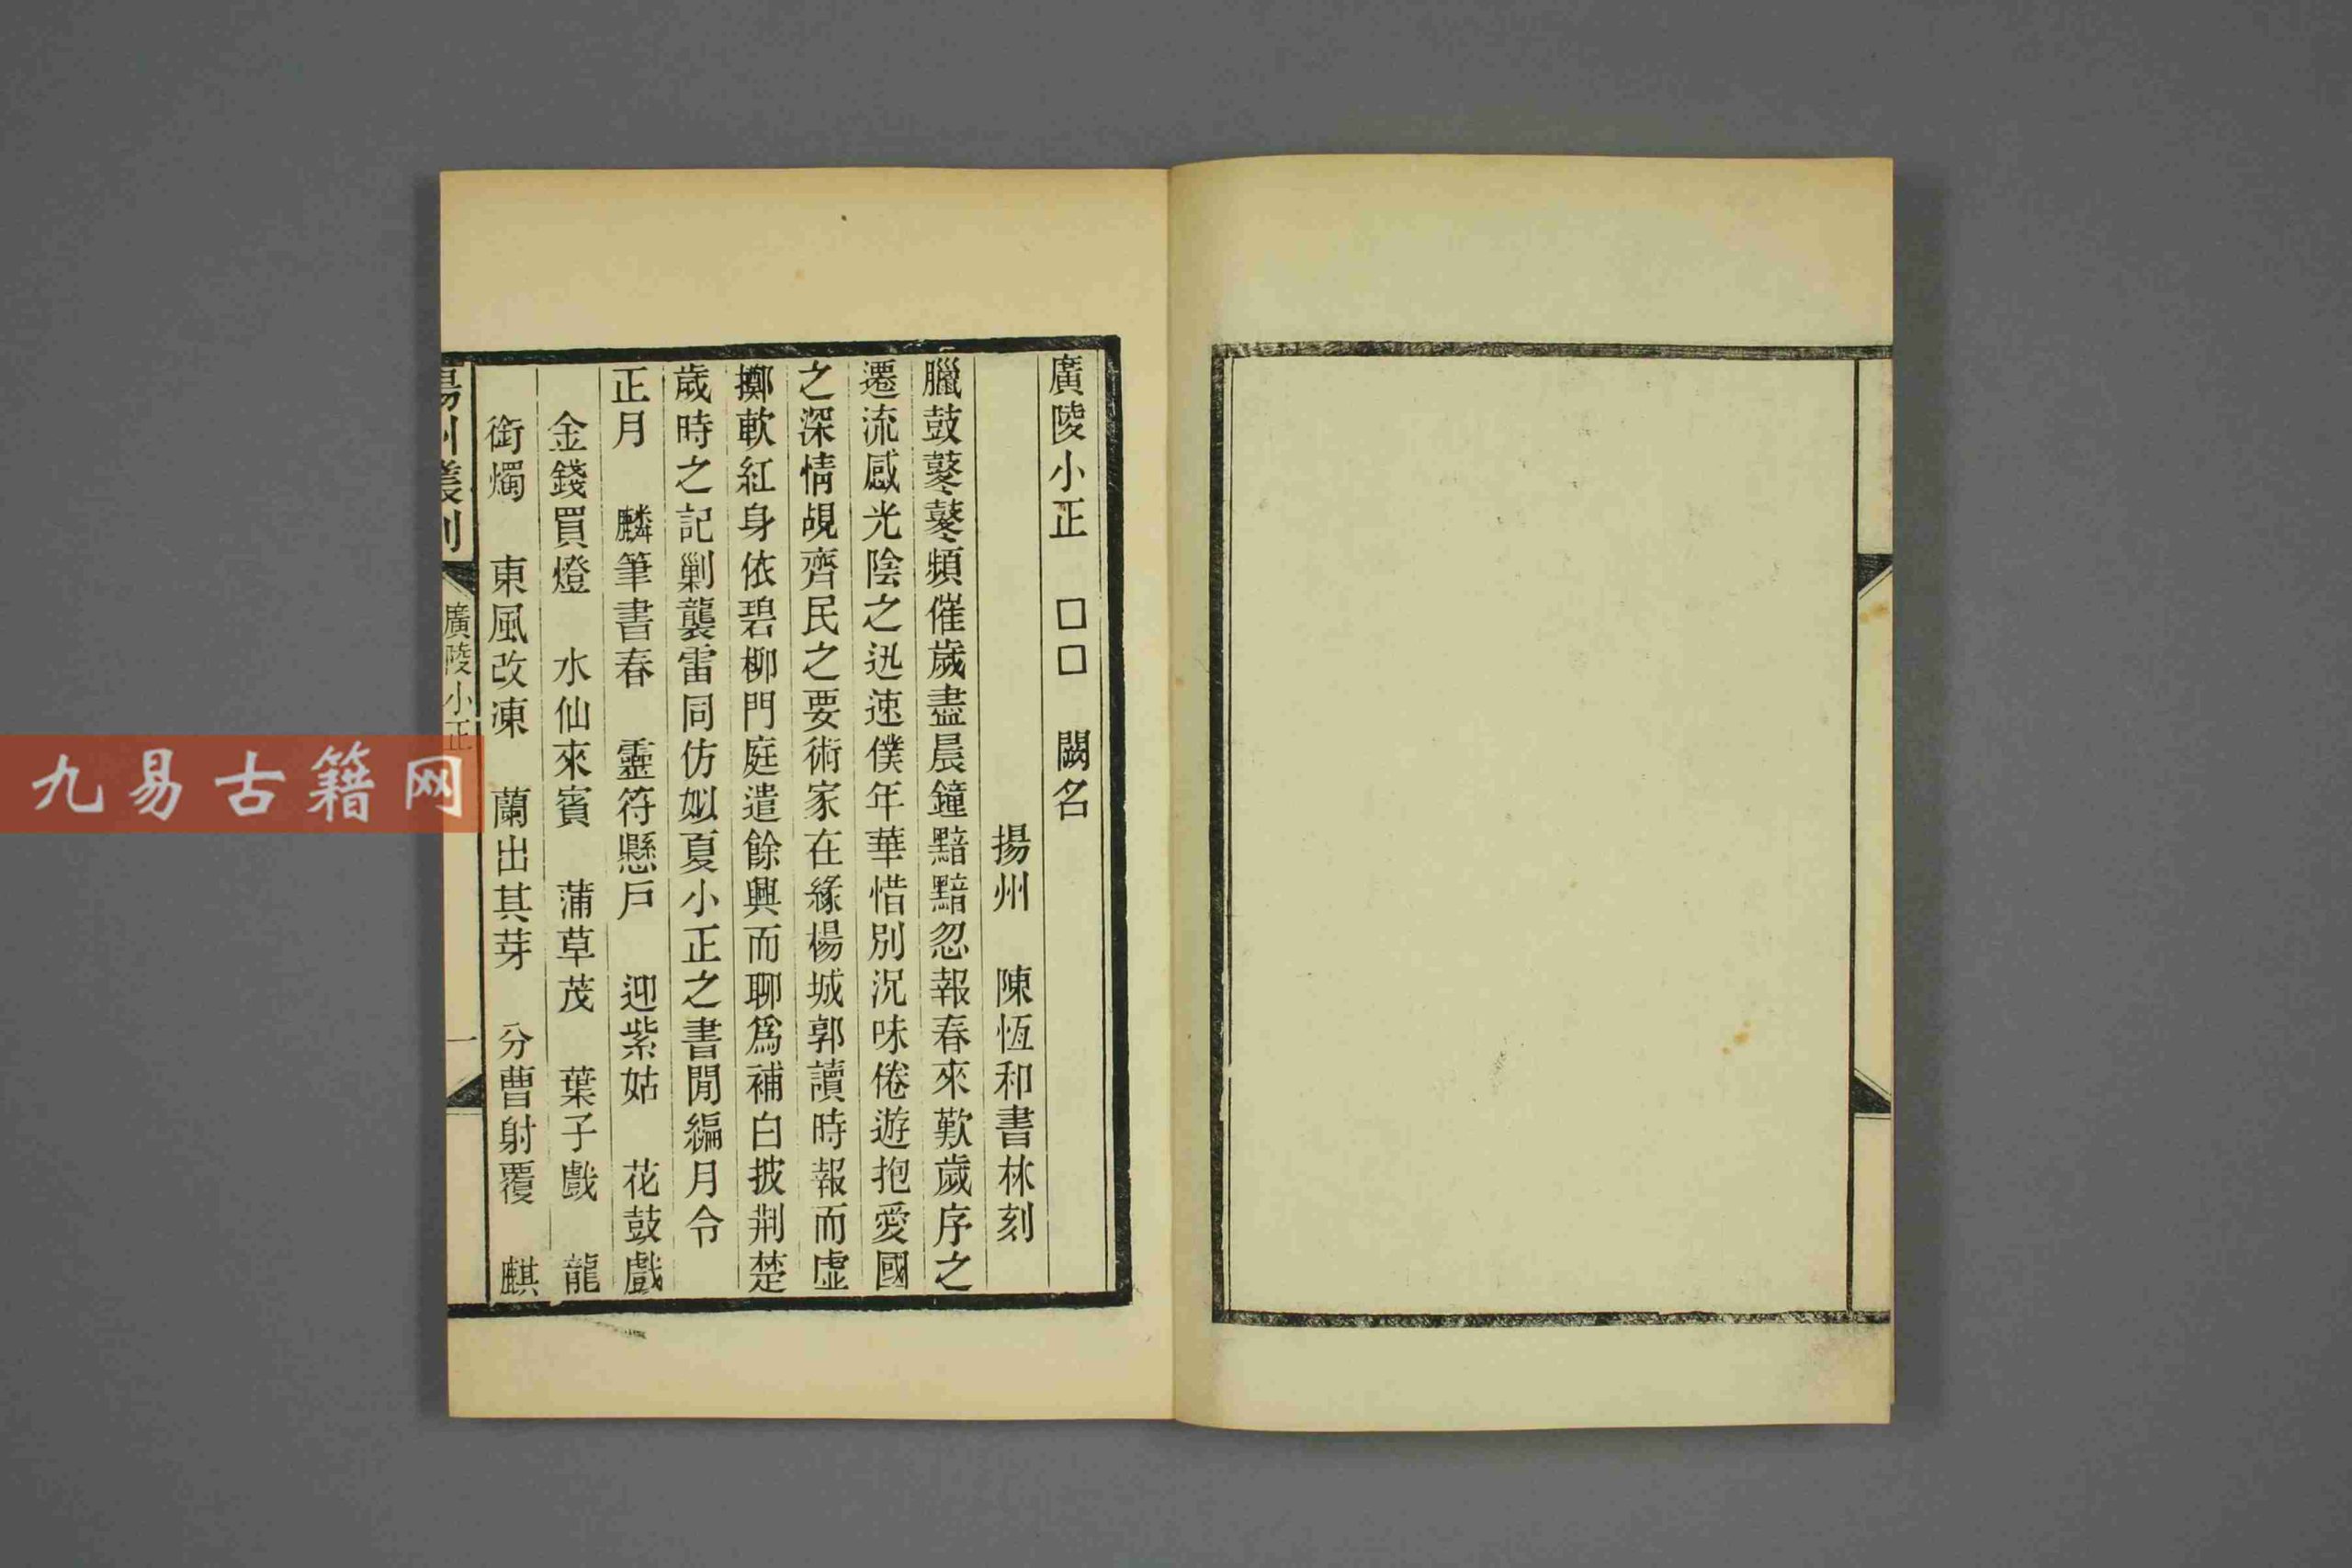 廣陵小正　□□　闕名
揚州　陳恆和書林刻
臘鼓鼕鼕頻催歲盡晨鐘黯黯忽報春來歎歲序之
遷流感光陰之迅速僕年華惜別況味倦遊抱愛國
之深情覘齊民之要術家在綠楊城郭讀時報而虛
擲軟紅身依碧柳門庭遣餘興而聊爲補白披荆楚
歲時之記剿襲雷同仿姒夏小正之書閒編月令
正月　麟筆書春　靈符懸戶　迎紫姑　花鼓戲
金錢買燈　水仙來賓　蒲草茂　葉子戲　龍
銜燭　東風改凍　蘭出其芽　分曹射覆　麒
揚州叢刻
廣陵小正
一
九易古籍网